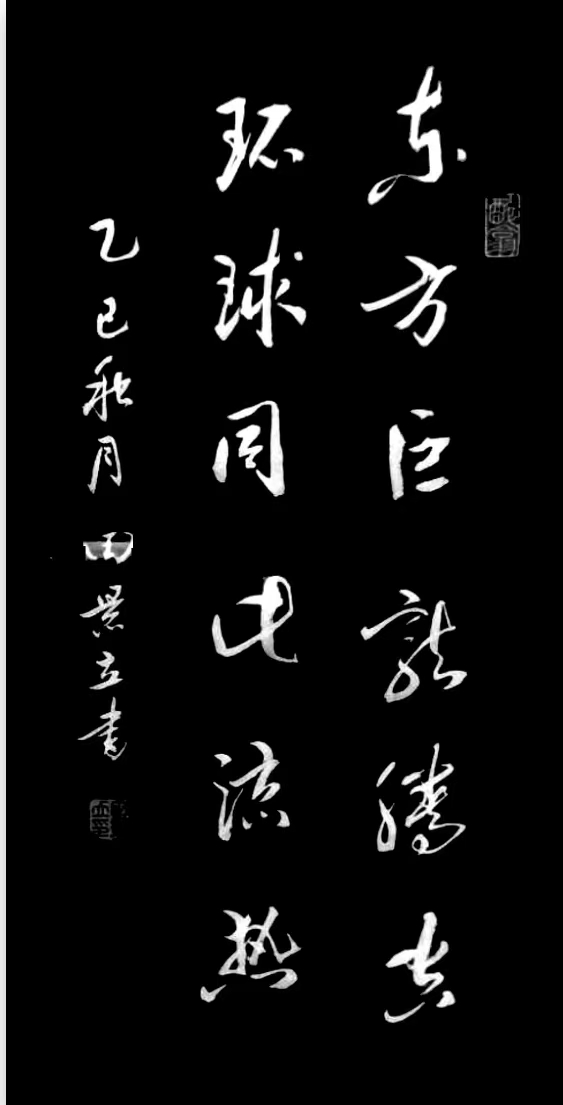 东方巨龙腾空
环球同此凉热
乙巳秋月 田景立书